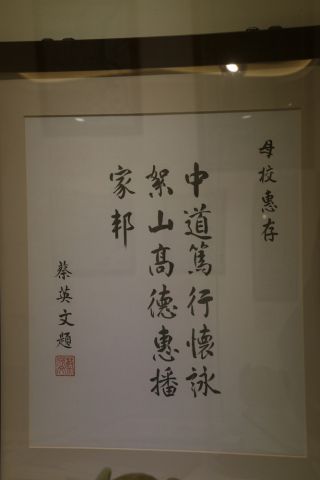 母校惠存
中道篤行懷詠
絮山高德惠播
家邦
蔡英文題